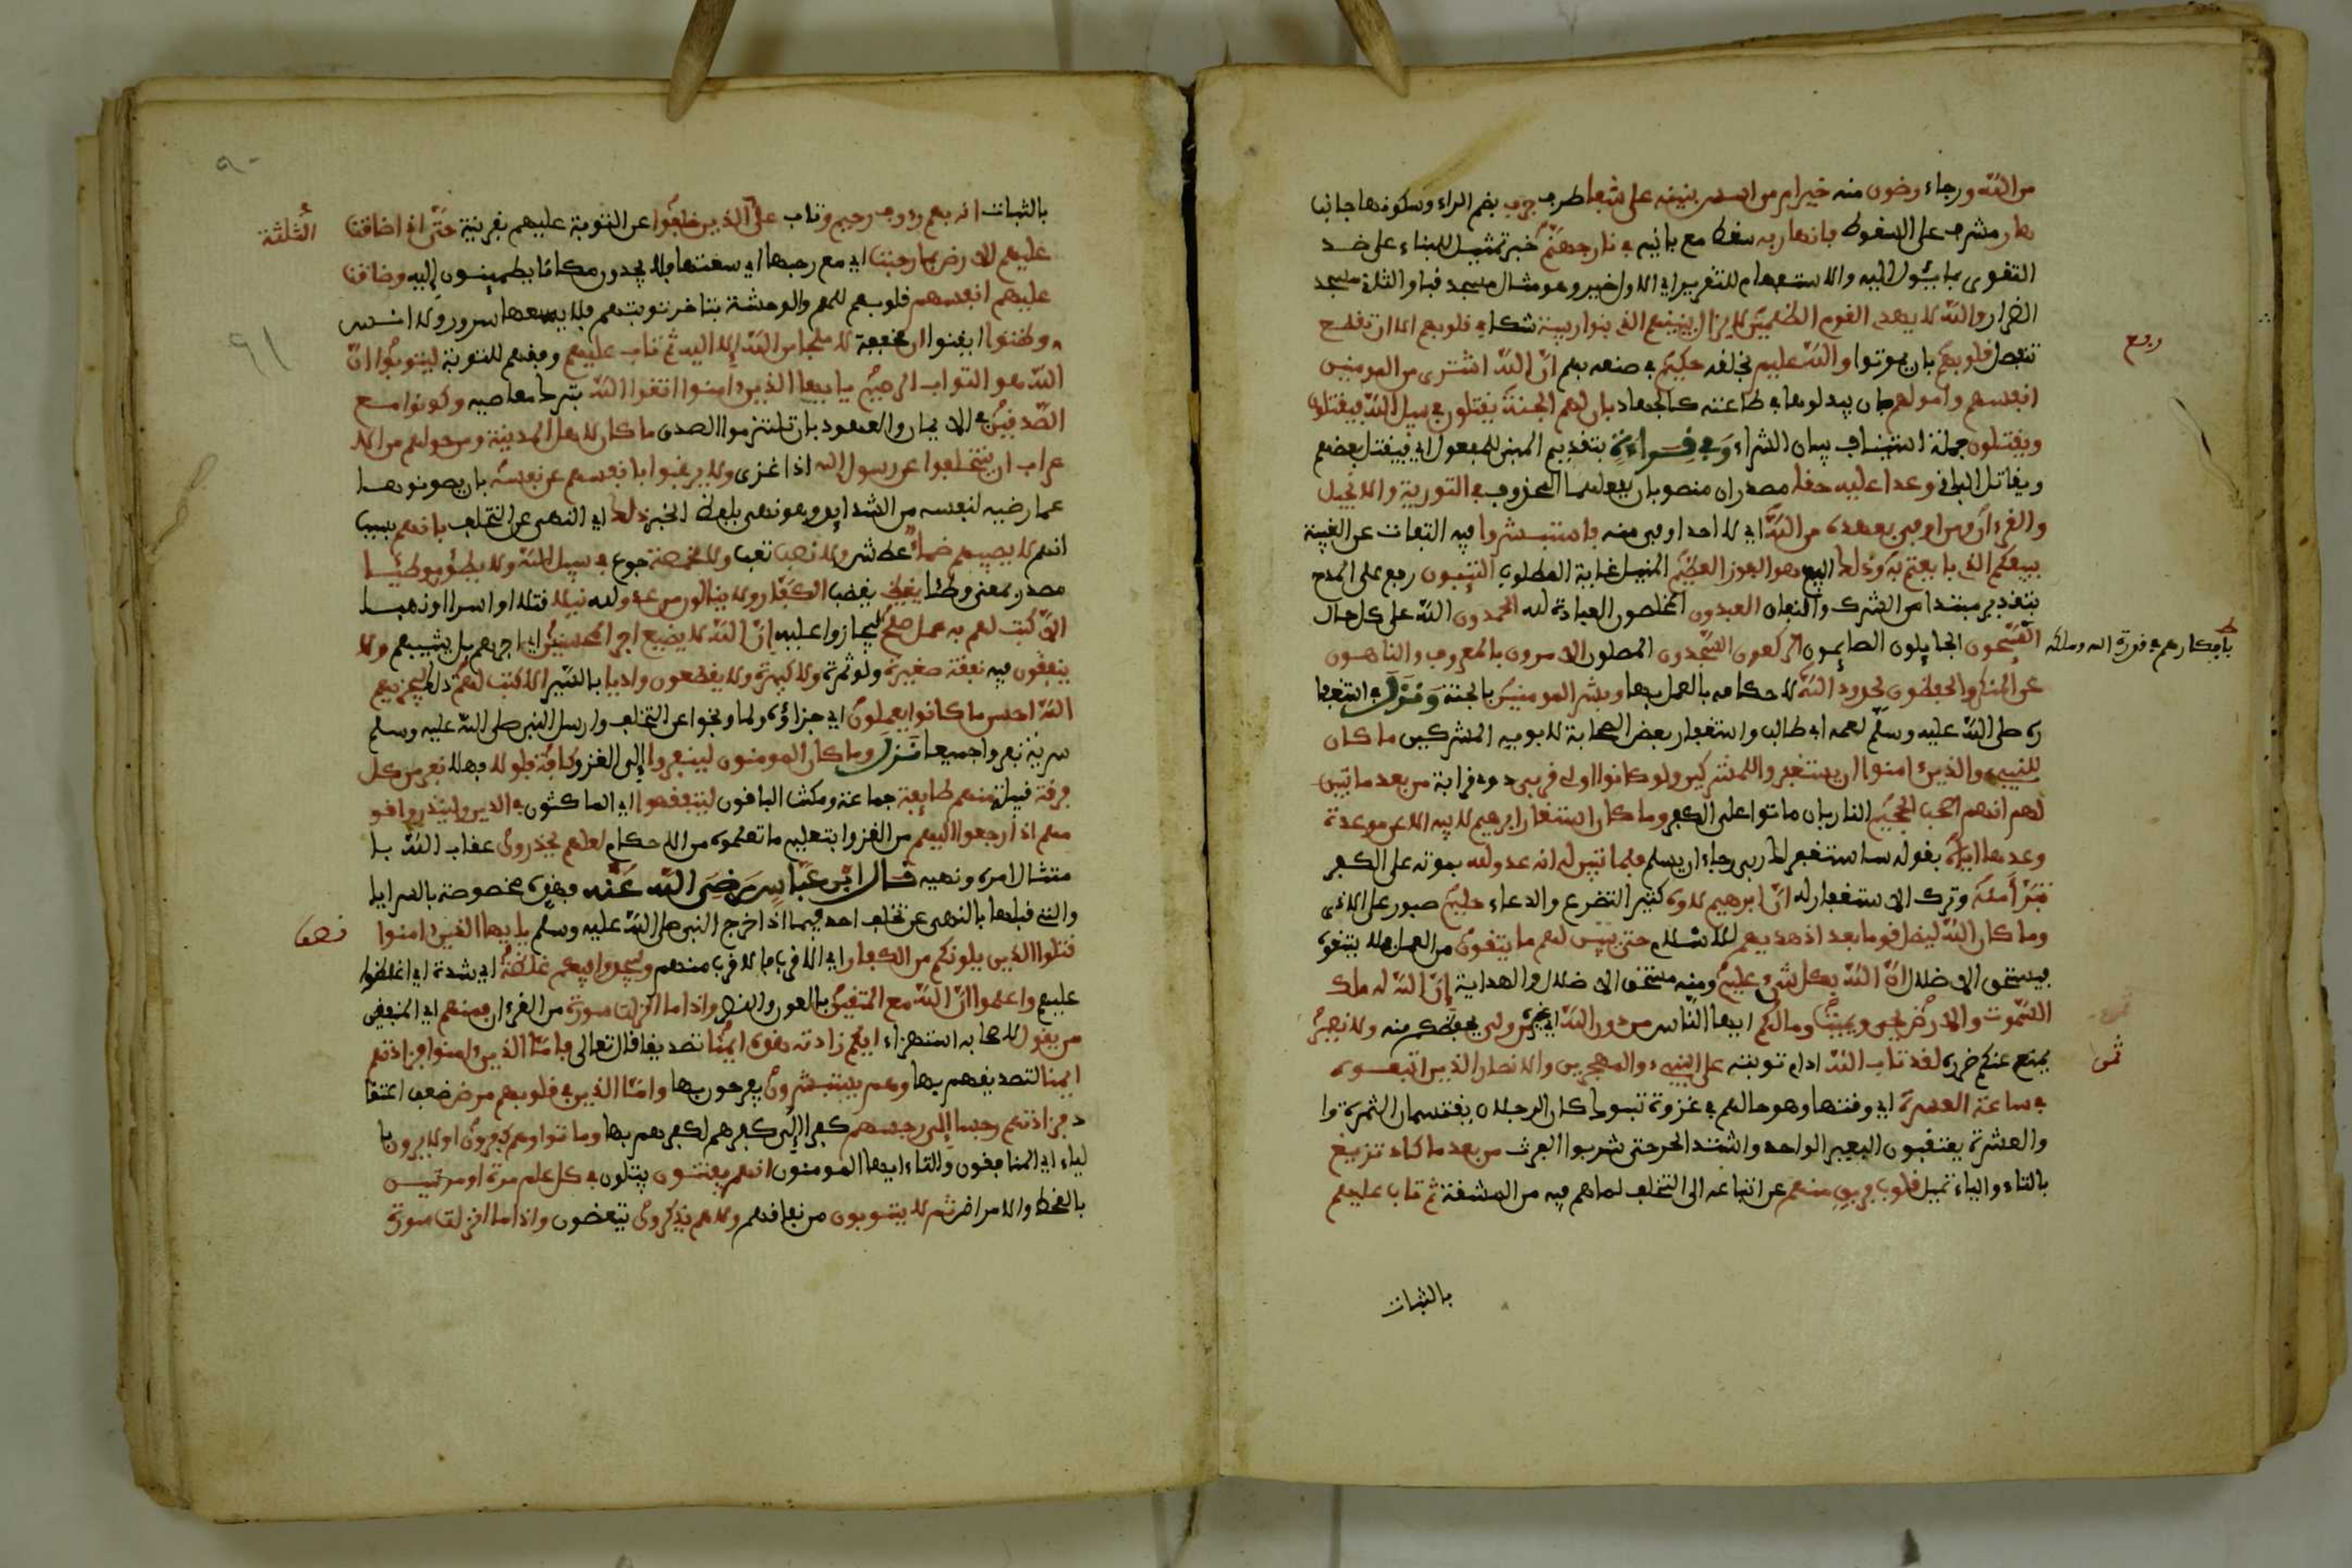 من الله ورجاء رضون منه خير ام من اسس بنينه على شفا طرف جرف بضم الراء وسكونها جانب
هار مشرف على السقوط فانهار به سقط مع بانيه في نار جهنم خبر تمثيل للبناء على ضد
التقوى بما يئول اليه والاستفهام للتقرير اي الاول خير وهو مثال مسجد قبا والثاني مسجد
الضرار والله لا يهدي القوم الظلمين لا يزال بنينهم الذي بنوا ريبة شكا في قلوبهم الا ان تقطع
تنفصل قلوبهم بان يموتوا والله عليم بخلقه حكيم في صنعه بهم ان الله اشترى من المومنين
انفسهم وامولهم بان يبذلوها في طاعته كالجهاد بان لهم الجنة يقتلون في سبيل الله فيقتلون
ويقتلون جملة استيناف بيان للشراء وفي قراءة بتقديم المبني للمفعول اي فيقتل بعضهم
ويقاتل الباقي وعدا عليه حقا مصدران منصوبان بفعلهما المحذوف في التورية والانجيل
والقرءان ومن اوفى بعهده من الله اي لا احد اوفى منه فاستبشروا فيه التفات عن الغيبة
ببيعكم الذي بايعتم به وذلك البيع هو الفوز العظيم المنيل غاية المطلوب التئبون رفع على المدح
بتقدير مبتدا من الشرك والنفاق العبدون المخلصون العبادة لله الحمدون الله على كل حال
السئحون الجايلون الصايمون الركعون السجدون المصلون الامرون بالمعروف والناهون
بافكارهم في قدرة الله وملكه
عن المنكر والحفظون لحدود الله لاحكامه بالعمل بها وبشر المومنين بالجنة ونزل في استغفا
ره صلى الله عليه وسلم لعمه ابي طالب واستغفار بعض الصحابة لابويه المشركين ما كان
للنبيء والذين ءامنوا ان يستغفروا للمشركين ولو كانوا اولي قربى ذوي قرابة من بعد ما تبين
لهم انهم اصحب الجحيم النار بان ماتوا على الكفر وما كان استغفار ابرهيم لابيه الا عن موعدة
وعدها اياه بقوله ساستغفر لك ربي رجاء ان يسلم فلما تبين له انه عدو لله بموته على الكفر
تبرا منه وترك الاستغفار له ان ابرهيم لاوه كثير التضرع والدعاء حليم صبور على الاذى
وما كان الله ليضل قوما بعد اذ هديهم للاسلام حتى يبين لهم ما يتقون من العمل فلا يتقوه
فيستحق الاضلال ان الله بكل شيء عليم ومنه مستحق الاضلال والهداية ان الله له ملك
السموت والارض يحي ويميت وما لكم ايها الناس من دون الله اي غيره من ولي يحفظكم منه ولا نصير
يمنع عنكم ضرره لقد تاب الله ادام توبته على النبيء والمهجرين والانصار الذين اتبعوه
في ساعة العسرة اي وقتها وهو حالهم في غزوة تبوك كان الرجلان يقتسمان الثمرة وا
والعشرة يعتقبون البعير الواحد واشتد الحر حتى شربوا الفرث من بعد ما كاد تزيغ
بالتاء والياء تميل قلوب فريق منهم عن اتباعه الى التخلف لما هم فيه من المشقة ثم تاب عليهم
بالثبات
ربع
ثمن
٩٠
٩١
بالثبات انه بهم رءوف رحيم وتاب على الذين خلفوا عن التوبة عليهم بقرينة حتى اذا ضاقت
الثلثة
عليهم الارض بما رحبت اي مع رحبها اي سعتها فلا يجدون مكانا يطمينون اليه وضاقت
عليهم انفسهم قلوبهم للغم والوحشة بتاخر توبتهم فلا يسعها سرور ولا انس
وظنوا ايقنوا ان مخففة لا ملجا من الله الا اليه ثم تاب عليهم وفقهم للتوبة ليتوبوا ان
الله هو التواب الرحيم يايها الذين ءامنوا اتقوا الله بترك معاصيه وكونوا مع
الصدقين في الايمان والعهود بان تلتزموا الصدق ما كان لاهل المدينة ومن حولهم من الا
عراب ان يتخلفوا عن رسول الله اذا غزى ولا يرغبوا بانفسهم عن نفسه بان يصونوها
عما رضيه لنفسه من الشدايد وهو نهى بلفظ الخبر ذلك اي النهي عن التخلف بانهم بسبب
انهم لا يصيبهم ظما عطش ولا نصب تعب ولا مخمصة جوع في سبيل الله ولا يطؤن موطئا
مصدر بمعنى وطئا يغيظ يغضب الكفار ولا ينالون من عدو لله نيلا قتلا او اسرا او نهبا
الا كتب لهم به عمل صلح ليجازوا عليه ان الله لا يضيع اجر المحسنين اي اجرهم بل يثيبهم ولا
ينفقون فيه نفقة صغيرة ولو ثمرة ولا كبيرة ولا يقطعون واديا بالسير الا كتب لهم ذلك ليجزيهم
الله احسن ما كانوا يعملون اي جزاؤه ولما وبخوا عن التخلف وارسل النبي صلى الله عليه وسلم
سرية نفروا جميعا نزل وما كان المومنون لينفروا الى الغزو كافة فلولا فهلا نفر من كل
فرقة قبيلة منهم طايفة جماعة ومكث الباقون ليتفقهوا اي الماكثون في الدين ولينذروا قو
مهم اذا رجعوا اليهم من الغزو بتعليم ما تعلموه من الاحكام لعلهم يحذرون عقاب الله با
متثال امره ونهيه قال ابن عباس رضي الله عنه فهذه مخصوصة بالسرايا
والتي قبلها بالنهي عن تخلف احد فيما اذا خرج النبي صلى الله عليه وسلم يايها الذين ءامنوا
نصف
قتلوا الذين يلونكم من الكفار اي الاقرب فالاقرب منهم وليجدوا فيكم غلظة اي شدة اي اغلظوا
عليهم واعلموا ان الله مع المتقين بالعون والنصر واذا ما انزلت سورة من القرءان فمنهم اي المنفقين
من يقول لاصحابه استهزاء ايكم زادته هذه ايمنا تصديقا قال تعالى فاما الذين ءامنوا فزادتهم
ايمنا لتصديقهم بها وهم يستبشرون يفرحون بها واما الذين في قلوبهم مرض ضعف اعتقا
د فزادتهم رجسا الى رجسهم كفرا الى كفرهم لكفرهم بها وماتوا وهم كفرون اولا يرون با
لياء اي المنافقون والتاء ايها المومنون انهم يفتنون يبتلون في كل عام مرة او مرتين
بالقحط والامراض ثم لا يتوبون من نفاقهم ولا هم يذكرون يتعظون واذا ما انزلت سورة